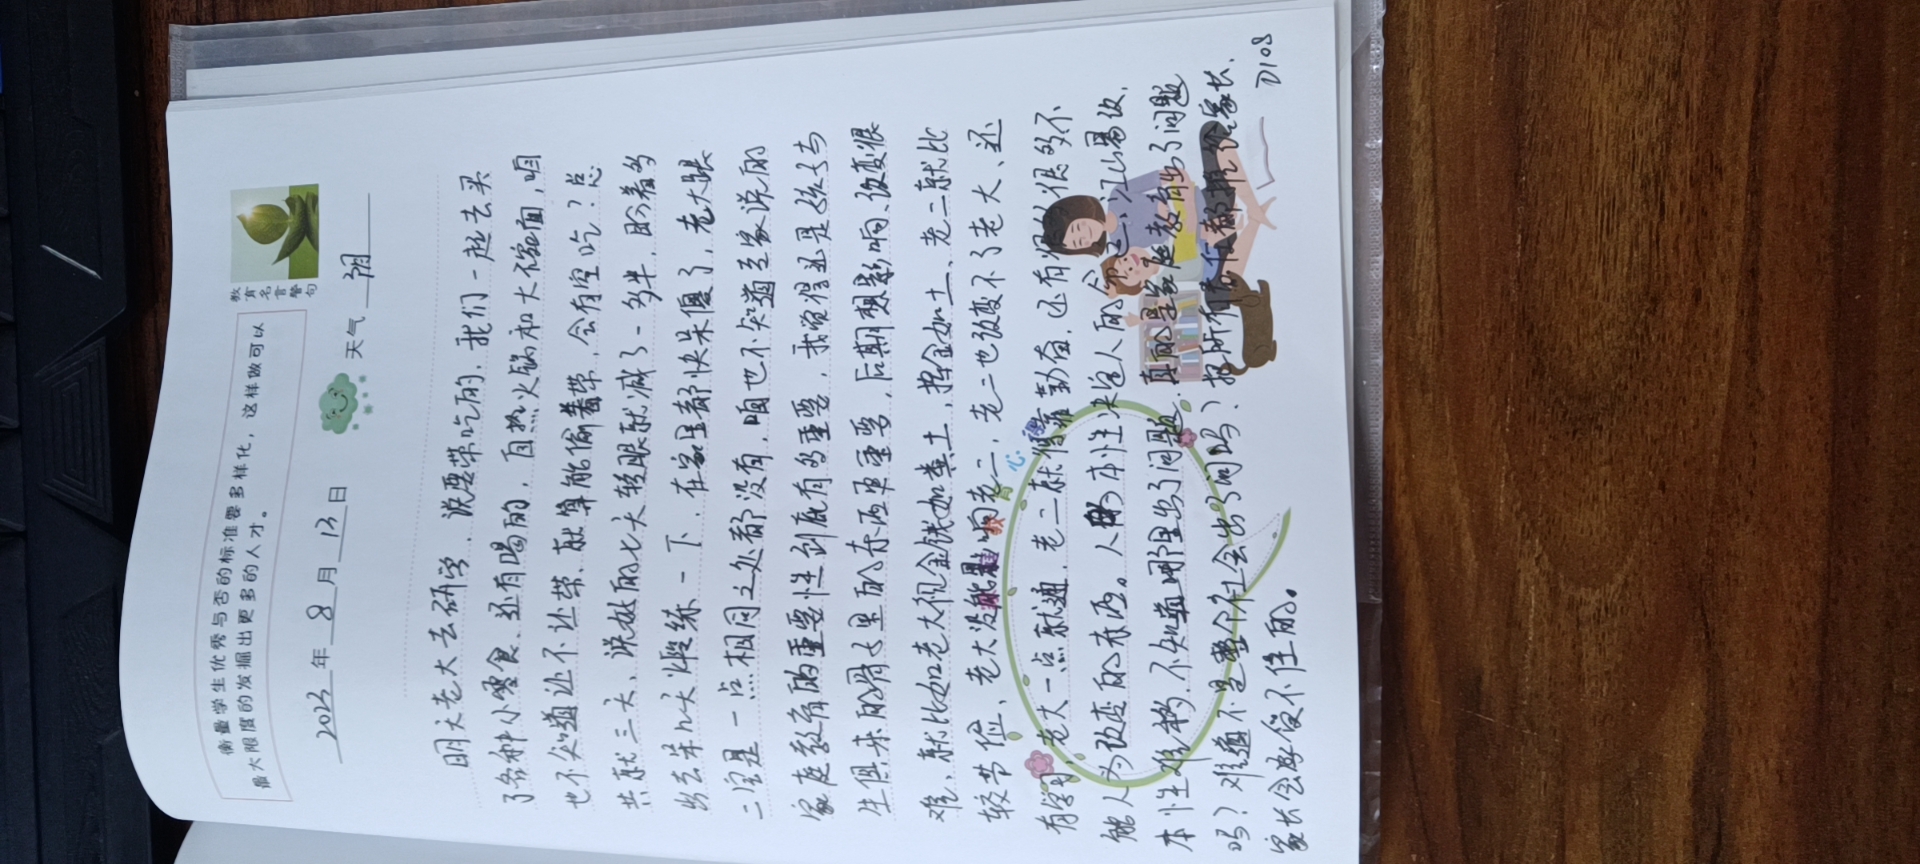 衡量学生优秀与否的标准要多样化，这样做可以
最大限度的发掘出更多的人才。
教育名言警句
2023年8月13日 天气 阴
明天老大去研学，说要带吃的，我们一起去买
了各种小零食、还有喝的，自热火锅和大不容面，咱
也不知道让不让带、就算能偷着带，会有空吃？总
共就三天、说放的七大轻眼就减了一多半，盼着多
出去呆几天火煅练一下，在家里都快呆傻了，老大跟
二宝是一点相同之处都没有，咱也不知道至家说的
家庭教育的重要性到底有多重要，我觉得还是孩子与
生俱来的骨子里面的东西更重要，后期想影响、改变很
难，就比如老大视金钱如粪土，挥金如土、老二就比
较节俭、老大没能影响老二，老二也改变不了老大、还
有学习，老大一点就通，老二就得靠勤奋，还有很多很多不
能人为改变的东西。人的本性决定人的命运，江山易改，
本性难移，不知道哪里出了问题，真的是家庭教育出了问题
吗？难道不是整个社会出了问吗？把所有责任都推给家长，
家长会承受不住的。
D108